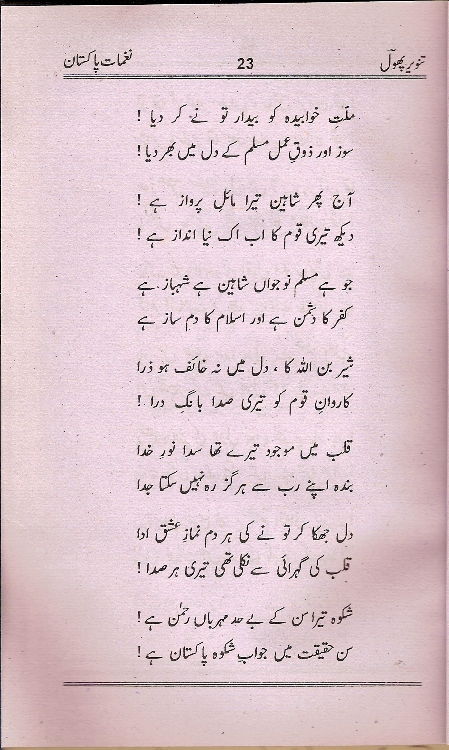 تنویر پھولؔ
23
نغماتِ پاکستان
ملّتِ خوابیدہ کو بیدار تو نے کر دیا !
سوز اور ذوقِ عمل مسلم کے دل میں بھر دیا !
آج پھر شاہین تیرا مائلِ پرواز ہے !
دیکھ تیری قوم کا اب اک نیا انداز ہے !
جو ہے مسلم نوجواں شاہین ہے شہباز ہے
کفر کا دشمن ہے اور اسلام کا دم ساز ہے
شیر بن اللہ کا ، دل میں نہ خائف ہو ذرا
کاروانِ قوم کو تیری صدا بانگِ درا !
قلب میں موجود تیرے تھا سدا نورِ خدا
بندہ اپنے رب سے ہرگز رہ نہیں سکتا جدا
دل جھکا کر تو نے کی ہر دم نمازِ عشق ادا
قلب کی گہرائی سے نکلی تھی تیری ہر صدا !
شکوہ تیرا سن کے بے حد مہرباں رحمٰن ہے !
سن حقیقت میں جوابِ شکوہ پاکستان ہے !